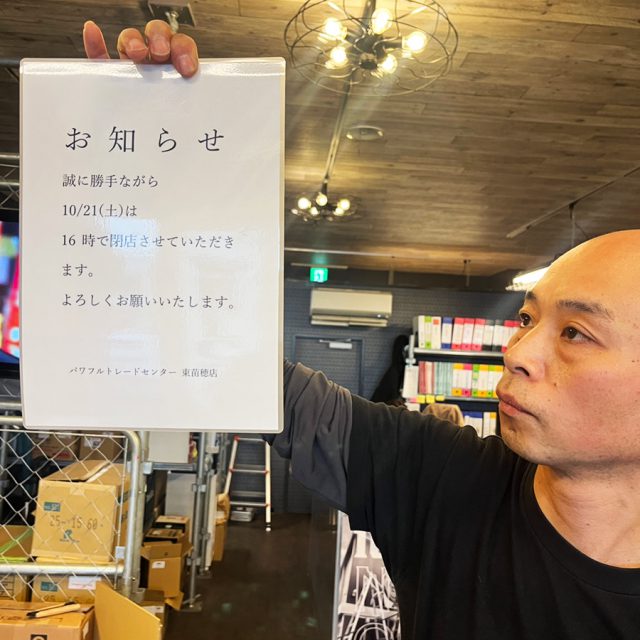 お知らせ
誠に勝手ながら
10/21(土)は
16 時で閉店させていただき
ます。
よろしくお願いいたします。
パワフルトレードセンター 東苗穂店
25-15.60